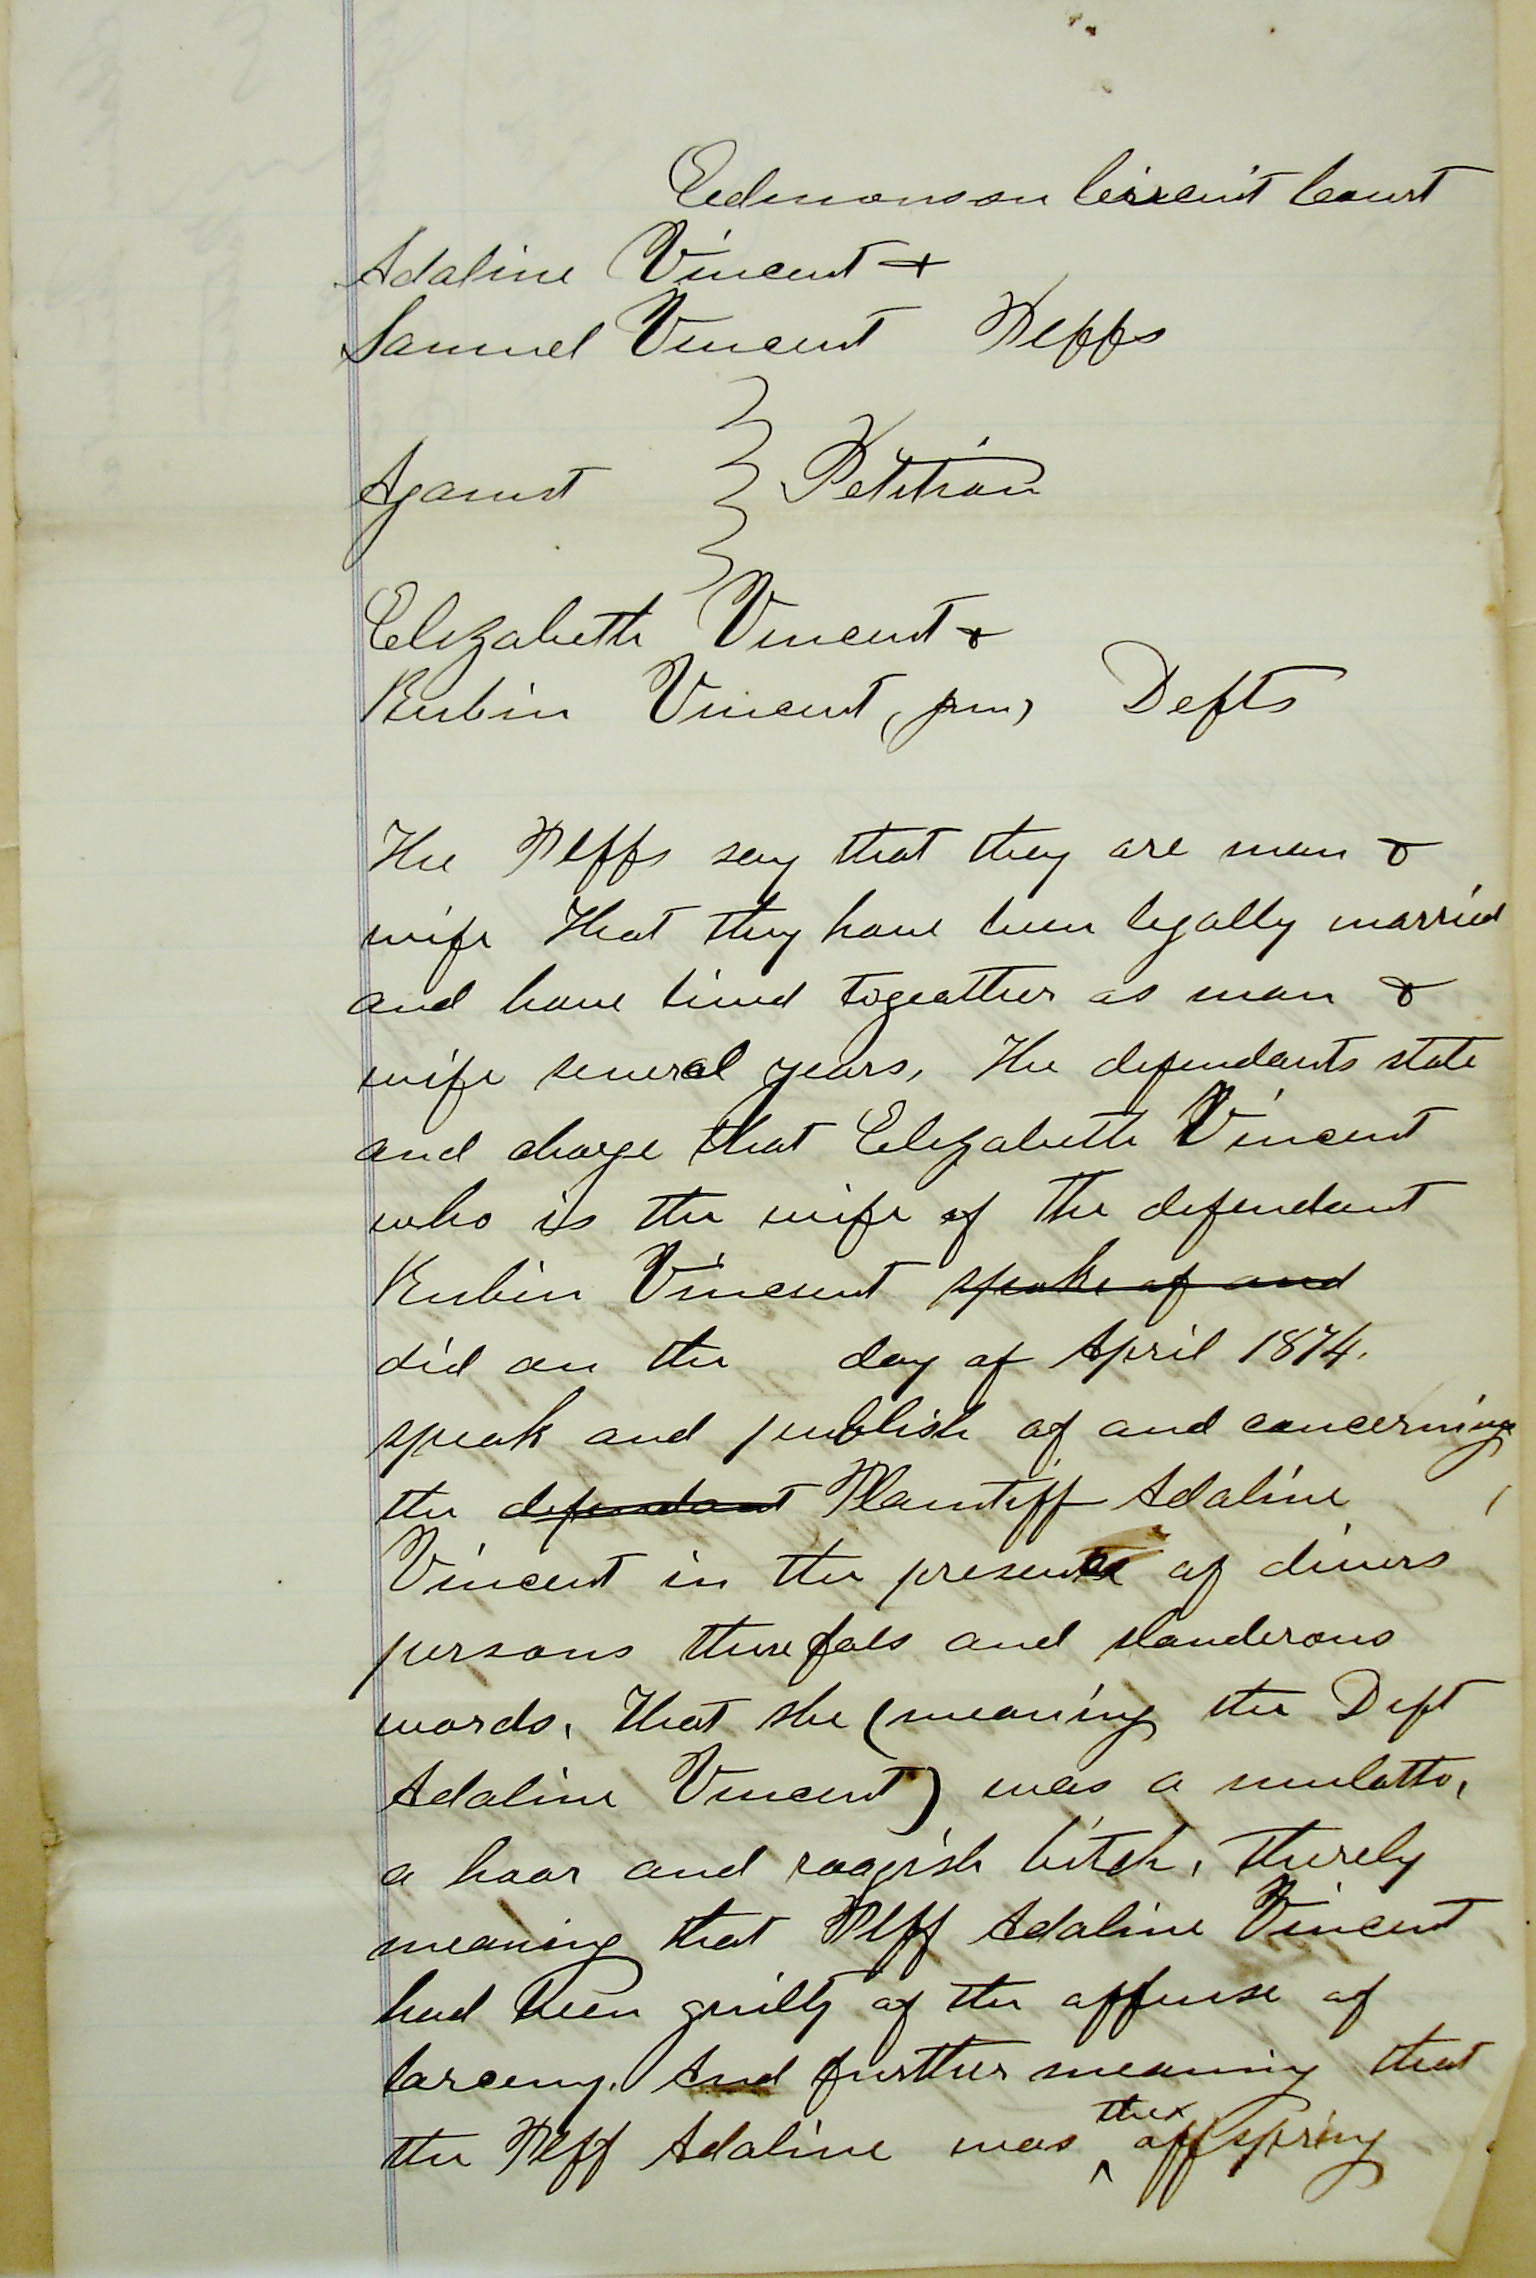 Edmonson Circuit Court
Adaline Vincent &
Samuel Vincent Plffs
Against } Petition
Elizabeth Vincent &
Rubin Vincent, jun, Defts
The Plffs say that they are man &
wife That they have been legally married
and have lived togeather as man &
wife several years, The defendants state
and charge that Elizabeth Vincent
who is the wife of the defendant
Rubin Vincent spoke of and
did on the day of April 1874.
speak and publish of and concerning
the defendant Plaintiff Adaline
Vincent in the presence of divers
persons these fals and slanderous
words. That she (meaning the Deft
Adaline Vincent) was a mulatto,
a hoar and roogish bitch, therely
meaning that Plff Adaline Vincent
had been guilty of the offense of
larceny. And further meaning that
the Plff Adaline was the offspring